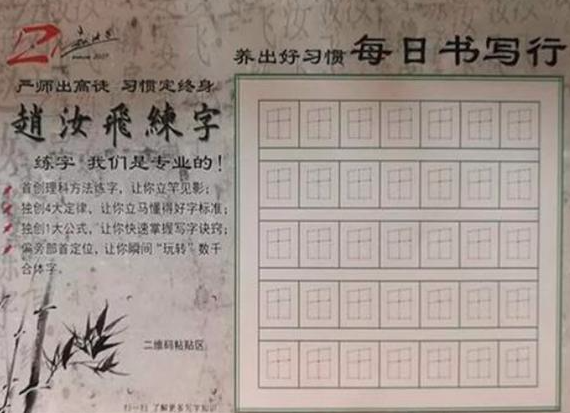 养出好习惯 每日书写行
严师出高徒 习惯定终身
趙汝飛練字
练字 我们是专业的!
首创理科方法练字，让你立竿见影;
独创4大定律，让你立马懂得好字标准;
独创1大公式，让你快速掌握写字诀窍;
偏旁部首定位，让你瞬间“玩转”数千
合体字。
二维码粘贴区
扫一扫 了解更多写字知识